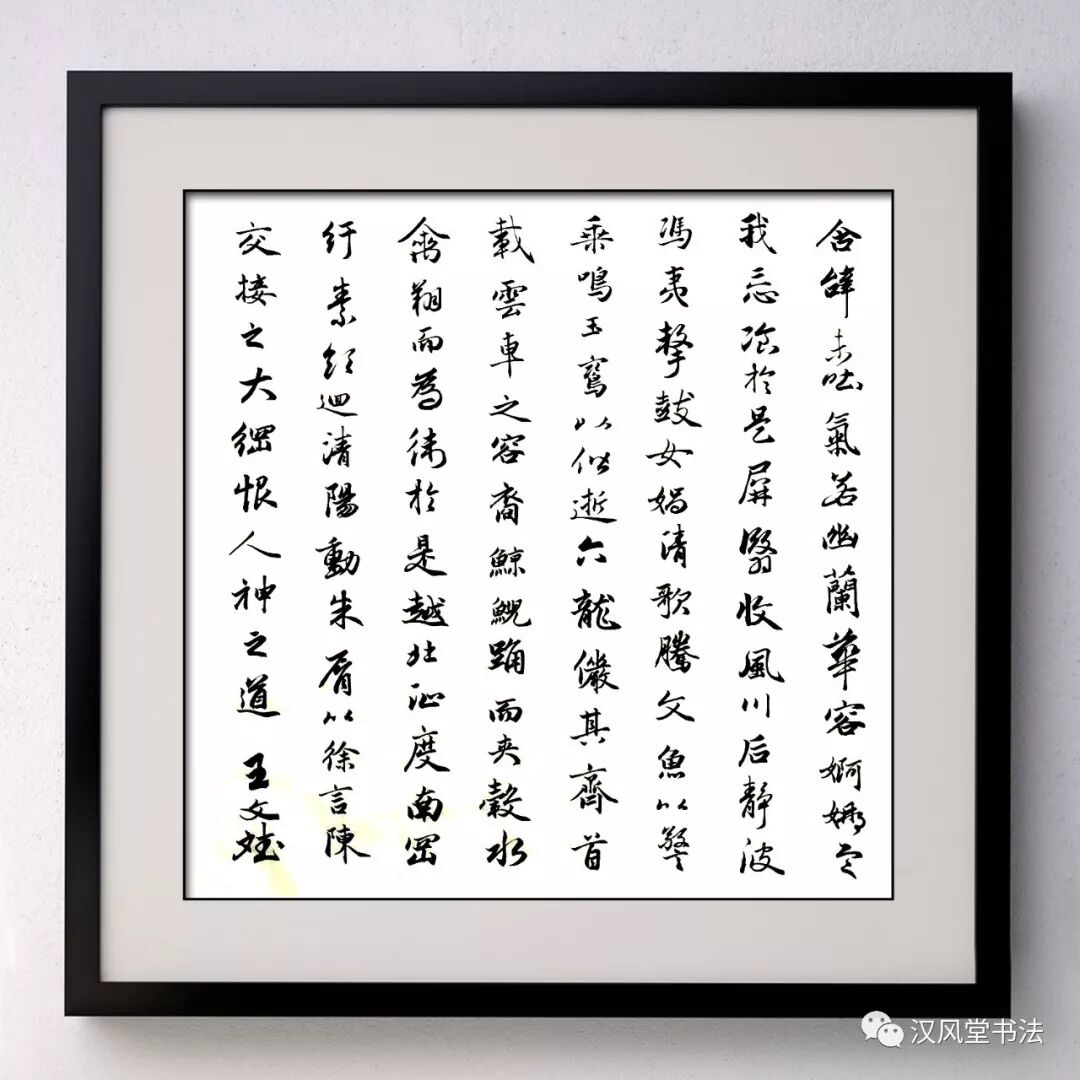 含辭未吐氣若幽蘭華容婀娜令
我忘飡於是屏翳收風川后靜波
馮夷擊鼓女媧清歌騰文魚以警
乘鳴玉鸞以偕逝六龍儼其齊首
載雲車之容裔鯨鯢踊而夾轂水
禽翔而為衛於是越北沚度南岡
紆素領迴清陽動朱脣以徐言陳
交接之大綱恨人神之道 王文斌
汉风堂书法